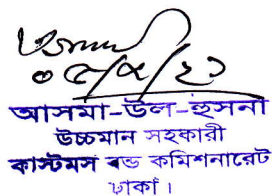 ০৫/৫/২১
আসমা-উল-হুসনা
উচ্চমান সহকারী
কাস্টমস বন্ড কমিশনারেট
ঢাকা।